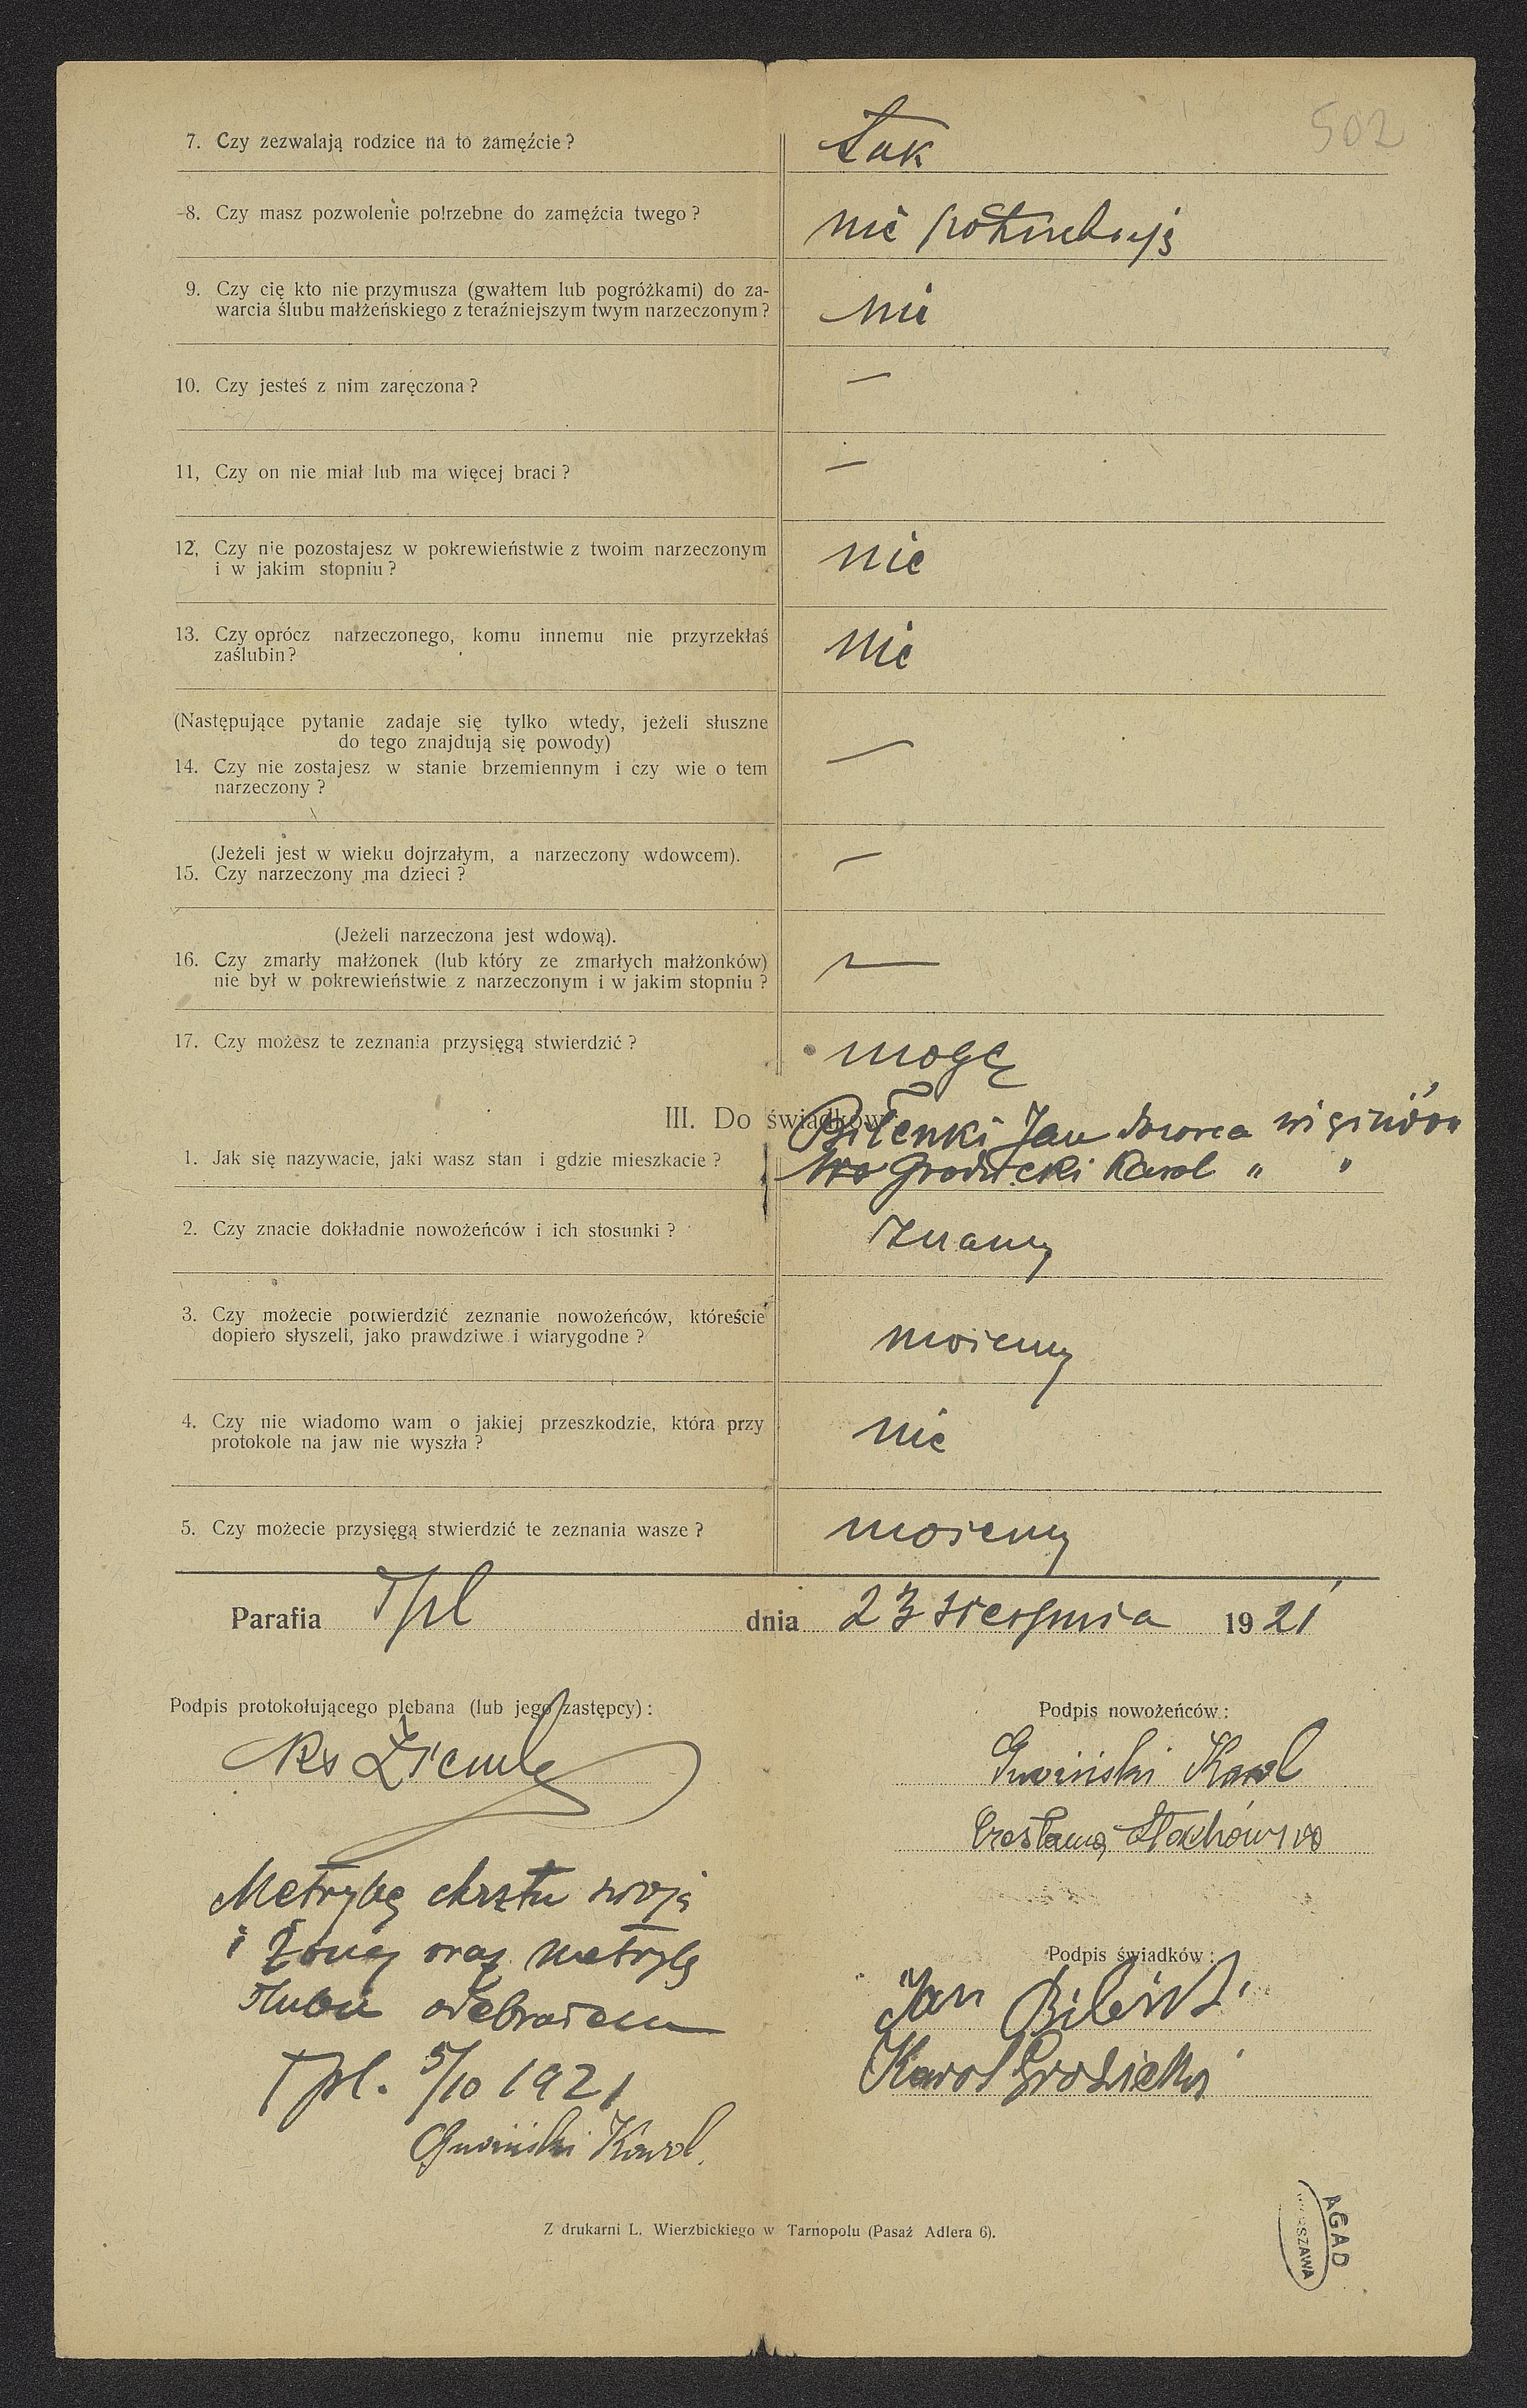 502
7. Czy zezwalają rodzice na to zamęźcie?
tak
8. Czy masz pozwolenie potrzebne do zamęźcia twego?
nie potrzebuję
9. Czy cię kto nie przymusza (gwałtem lub pogróżkami) do za-
warcia ślubu małżeńskiego z teraźniejszym twym narzeczonym?
nie
10. Czy jesteś z nim zaręczona?
—
11, Czy on nie miał lub ma więcej braci?
—
12, Czy nie pozostajesz w pokrewieństwie z twoim narzeczonym
i w jakim stopniu?
nie
13. Czy oprócz narzeczonego, komu innemu nie przyrzekłaś
zaślubin?
nie
(Następujące pytanie zadaje się tylko wtedy, jeżeli słuszne
do tego znajdują się powody)
14. Czy nie zostajesz w stanie brzemiennym i czy wie o tem
narzeczony?
—
(Jeżeli jest w wieku dojrzałym, a narzeczony wdowcem).
15. Czy narzeczony ma dzieci?
—
(Jeżeli narzeczona jest wdową).
16. Czy zmarły małżonek (lub który ze zmarłych małżonków)
nie był w pokrewieństwie z narzeczonym i w jakim stopniu?
—
17. Czy możesz te zeznania przysięgą stwierdzić?
mogę
III. Do świadków
Bilenki Jan dozorca
1. Jak się nazywacie, jaki wasz stan i gdzie mieszkacie?
Grodzicki Karol " "
2. Czy znacie dokładnie nowożeńców i ich stosunki?
Znamy
3. Czy możecie potwierdzić zeznanie nowożeńców, któreście
dopiero słyszeli, jako prawdziwe i wiarygodne?
możemy
4. Czy nie wiadomo wam o jakiej przeszkodzie, która przy
protokole na jaw nie wyszła?
nie
5. Czy możecie przysięgą stwierdzić te zeznania wasze?
możemy
Parafia Tpl dnia 23 sierpnia 1921
Podpis protokołującego plebana (lub jego zastępcy):
Ks Ziemba
Podpis nowożeńców:
Karol
Metrykę chrztu swoją
i żony oraz metrykę
ślubu odebrałem
Tpl. 5/10 1921
Karol
Podpis świadków:
Jan
Karol Grodzicki
Z drukarni L. Wierzbickiego w Tarnopolu (Pasaż Adlera 6).
AGAD
WARSZAWA